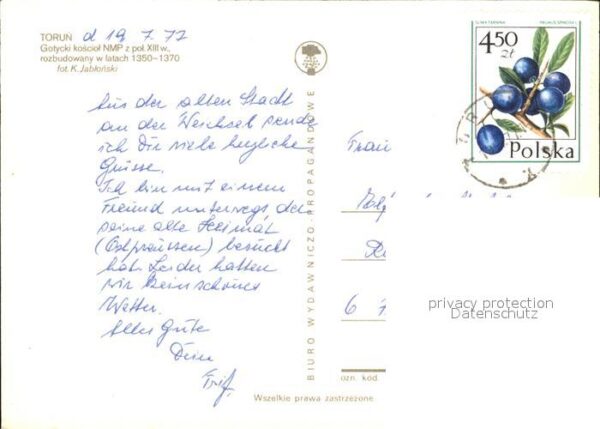 TORUŃ d 19 7. 72
Gotycki kościół NMP z poł. XIII w.,
rozbudowany w latach 1350–1370
fot. K. Jabłoński
Aus der alten Stadt
an der Weichsel sende
ich Dir viele herzliche
Grüsse.
Ich bin mit einem
Freund unterwegs, der
seine alte Heimat
(Ostpreussen) besucht
hat. Leider hatten
wir kein schönes
Wetter.
Alles Gute
Dein
BIURO WYDAWNICZO-PROPAGANDOWE
4.50
zł
Polska
Frau
6
privacy protection
Datenschutz
ozn. kod.
Wszelkie prawa zastrzeżone